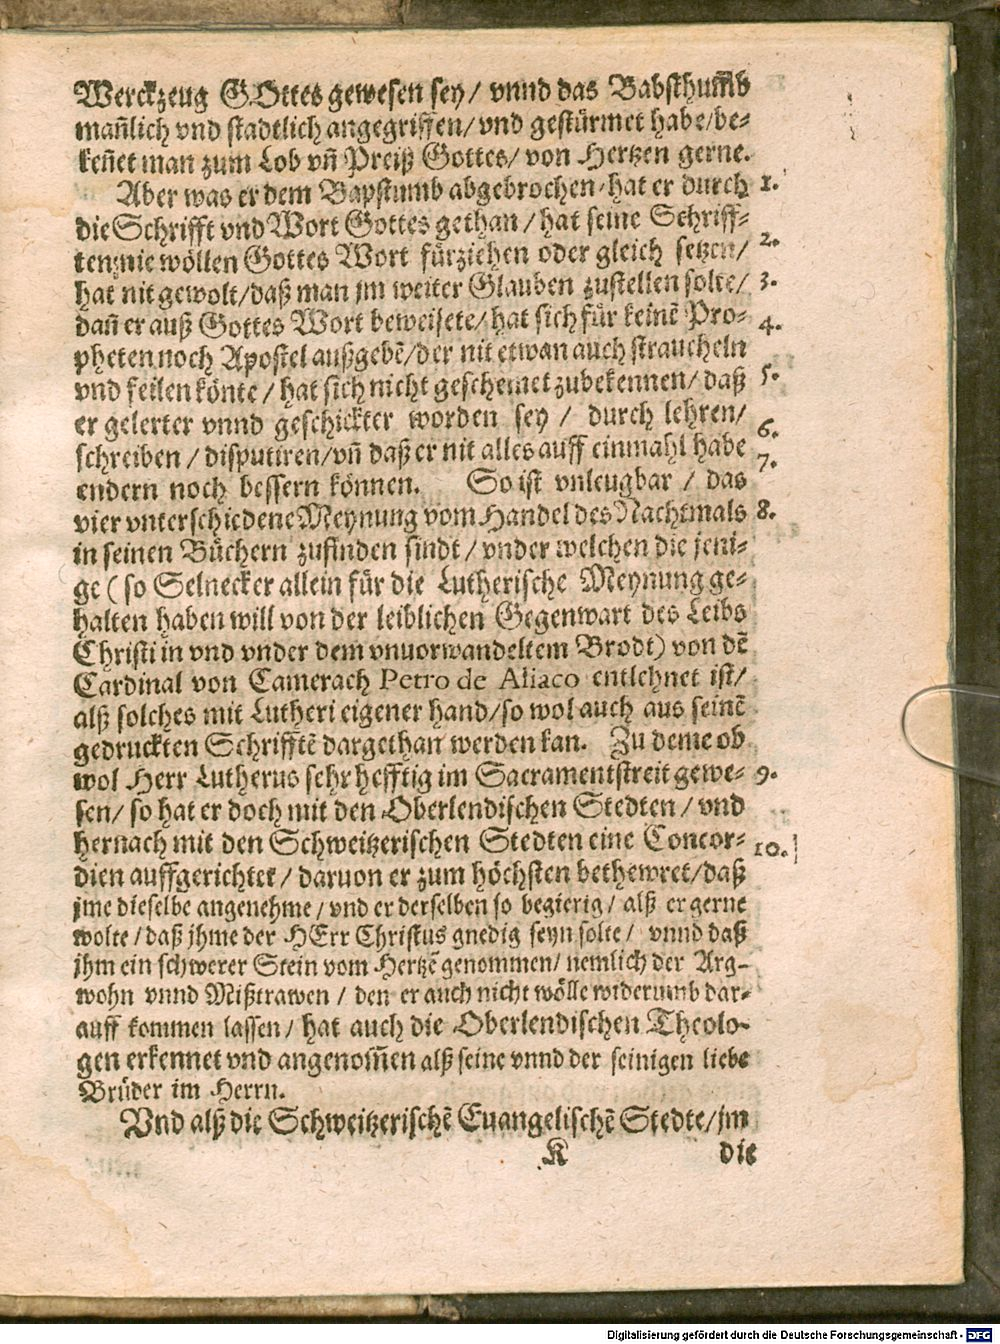 Werckzeug GOttes gewesen sey / vnnd das Babsthum̃b
mañlich vnd stadtlich angegriffen / vnd gestürmet habe / be-
keñet man zum Lob vñ Preiß Gottes / von Hertzen gerne.
Aber was er dem Bapstumb abgebrochen / hat er durch 1.
die Schrifft vnd Wort Gottes gethan / hat seine Schriff-
ten nie wöllen Gottes Wort fürziehen oder gleich setzen / 2.
hat nit gewolt / daß man jm weiter Glauben zustellen solte / 3.
dañ er auß Gottes Wort beweisete / hat sich für keinẽ Pro- 4.
pheten noch Apostel außgebẽ / der nit etwan auch straucheln
vnd feilen könte / hat sich nicht geschemet zubekennen / daß 5.
er gelerter vnnd geschickter worden sey / durch lehren /
schreiben / disputiren / vñ daß er nit alles auff einmahl habe 6.
endern noch bessern können. So ist vnleugbar / das 7.
vier vnterschiedene Meynung vom Handel des Nachtmals 8.
in seinen Büchern zufinden sindt / vnder welchen die jeni-
ge ( so Selnecker allein für die Lutherische Meynung ge-
halten haben will von der leiblichen Gegenwart des Leibs
Christi in vnd vnder dem vnuorwandeltem Brodt) von dẽ
Cardinal von Camerach Petro de Aliaco entlehnet ist /
alß solches mit Lutheri eigener hand / so wol auch aus seinẽ
gedruckten Schrifftẽ dargethan werden kan. Zu deme ob
wol Herr Lutherus sehr hefftig im Sacramentstreit gewe- 9.
sen / so hat er doch mit den Oberlendischen Stedten / vnd
hernach mit den Schweitzerischen Stedten eine Concor- 10.
dien auffgerichtet / daruon er zum höchsten bethewret / daß
jme dieselbe angenehme / vnd er derselben so begierig / alß er gerne
wolte / daß jhme der HErr Christus gnedig seyn solte / vnnd daß
jhm ein schwerer Stein vom Hertzẽ genommen / nemlich der Arg-
wohn vnnd Mißtrawen / den er auch nicht wölle widerumb dar-
auff kommen lassen / hat auch die Oberlendischen Theolo-
gen erkennet vnd angenom̃en alß seine vnnd der seinigen liebe
Brüder im Herrn.
Vnd alß die Schweitzerischẽ Euangelischẽ Stedte / jm
K die
Digitalisierung gefördert durch die Deutsche Forschungsgemeinschaft - DFG